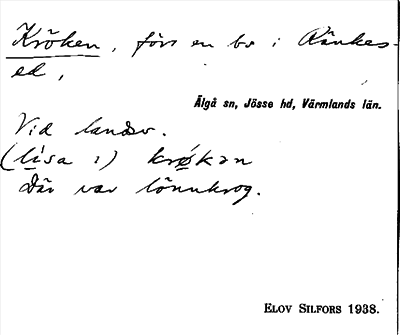 Kröken, förr en bo i Ränkes-
ed,
Älgå sn, Jösse hd, Värmlands län.
Vid landsv.
(lisa 1) krǿ̱kən
Där var lönnkrog.
ELOV SILFORS 1938.